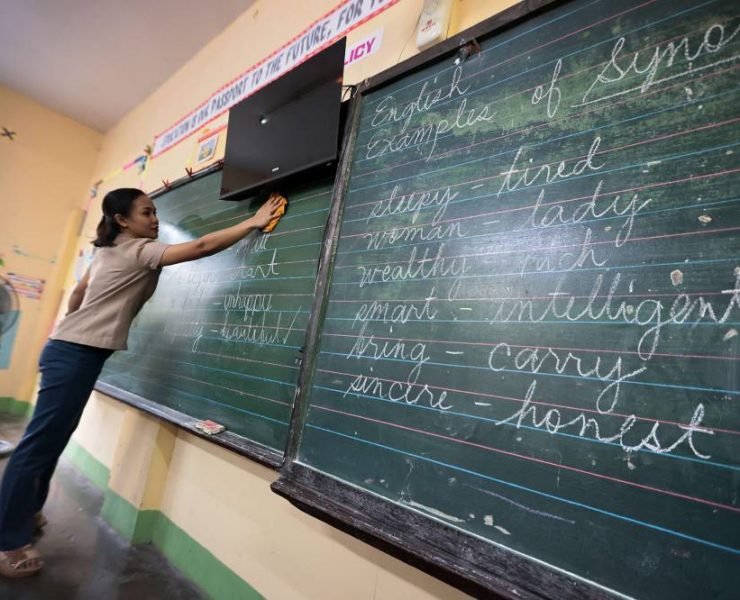 EDUCATION IS OUR PASSPORT TO THE FUTURE, FOR
LICY
start
unhappy
beautiful
English
Examples of Syno
sleepy - tired
woman lady
wealthy rich
smart - intelligent
bring - carry
sincere - honest